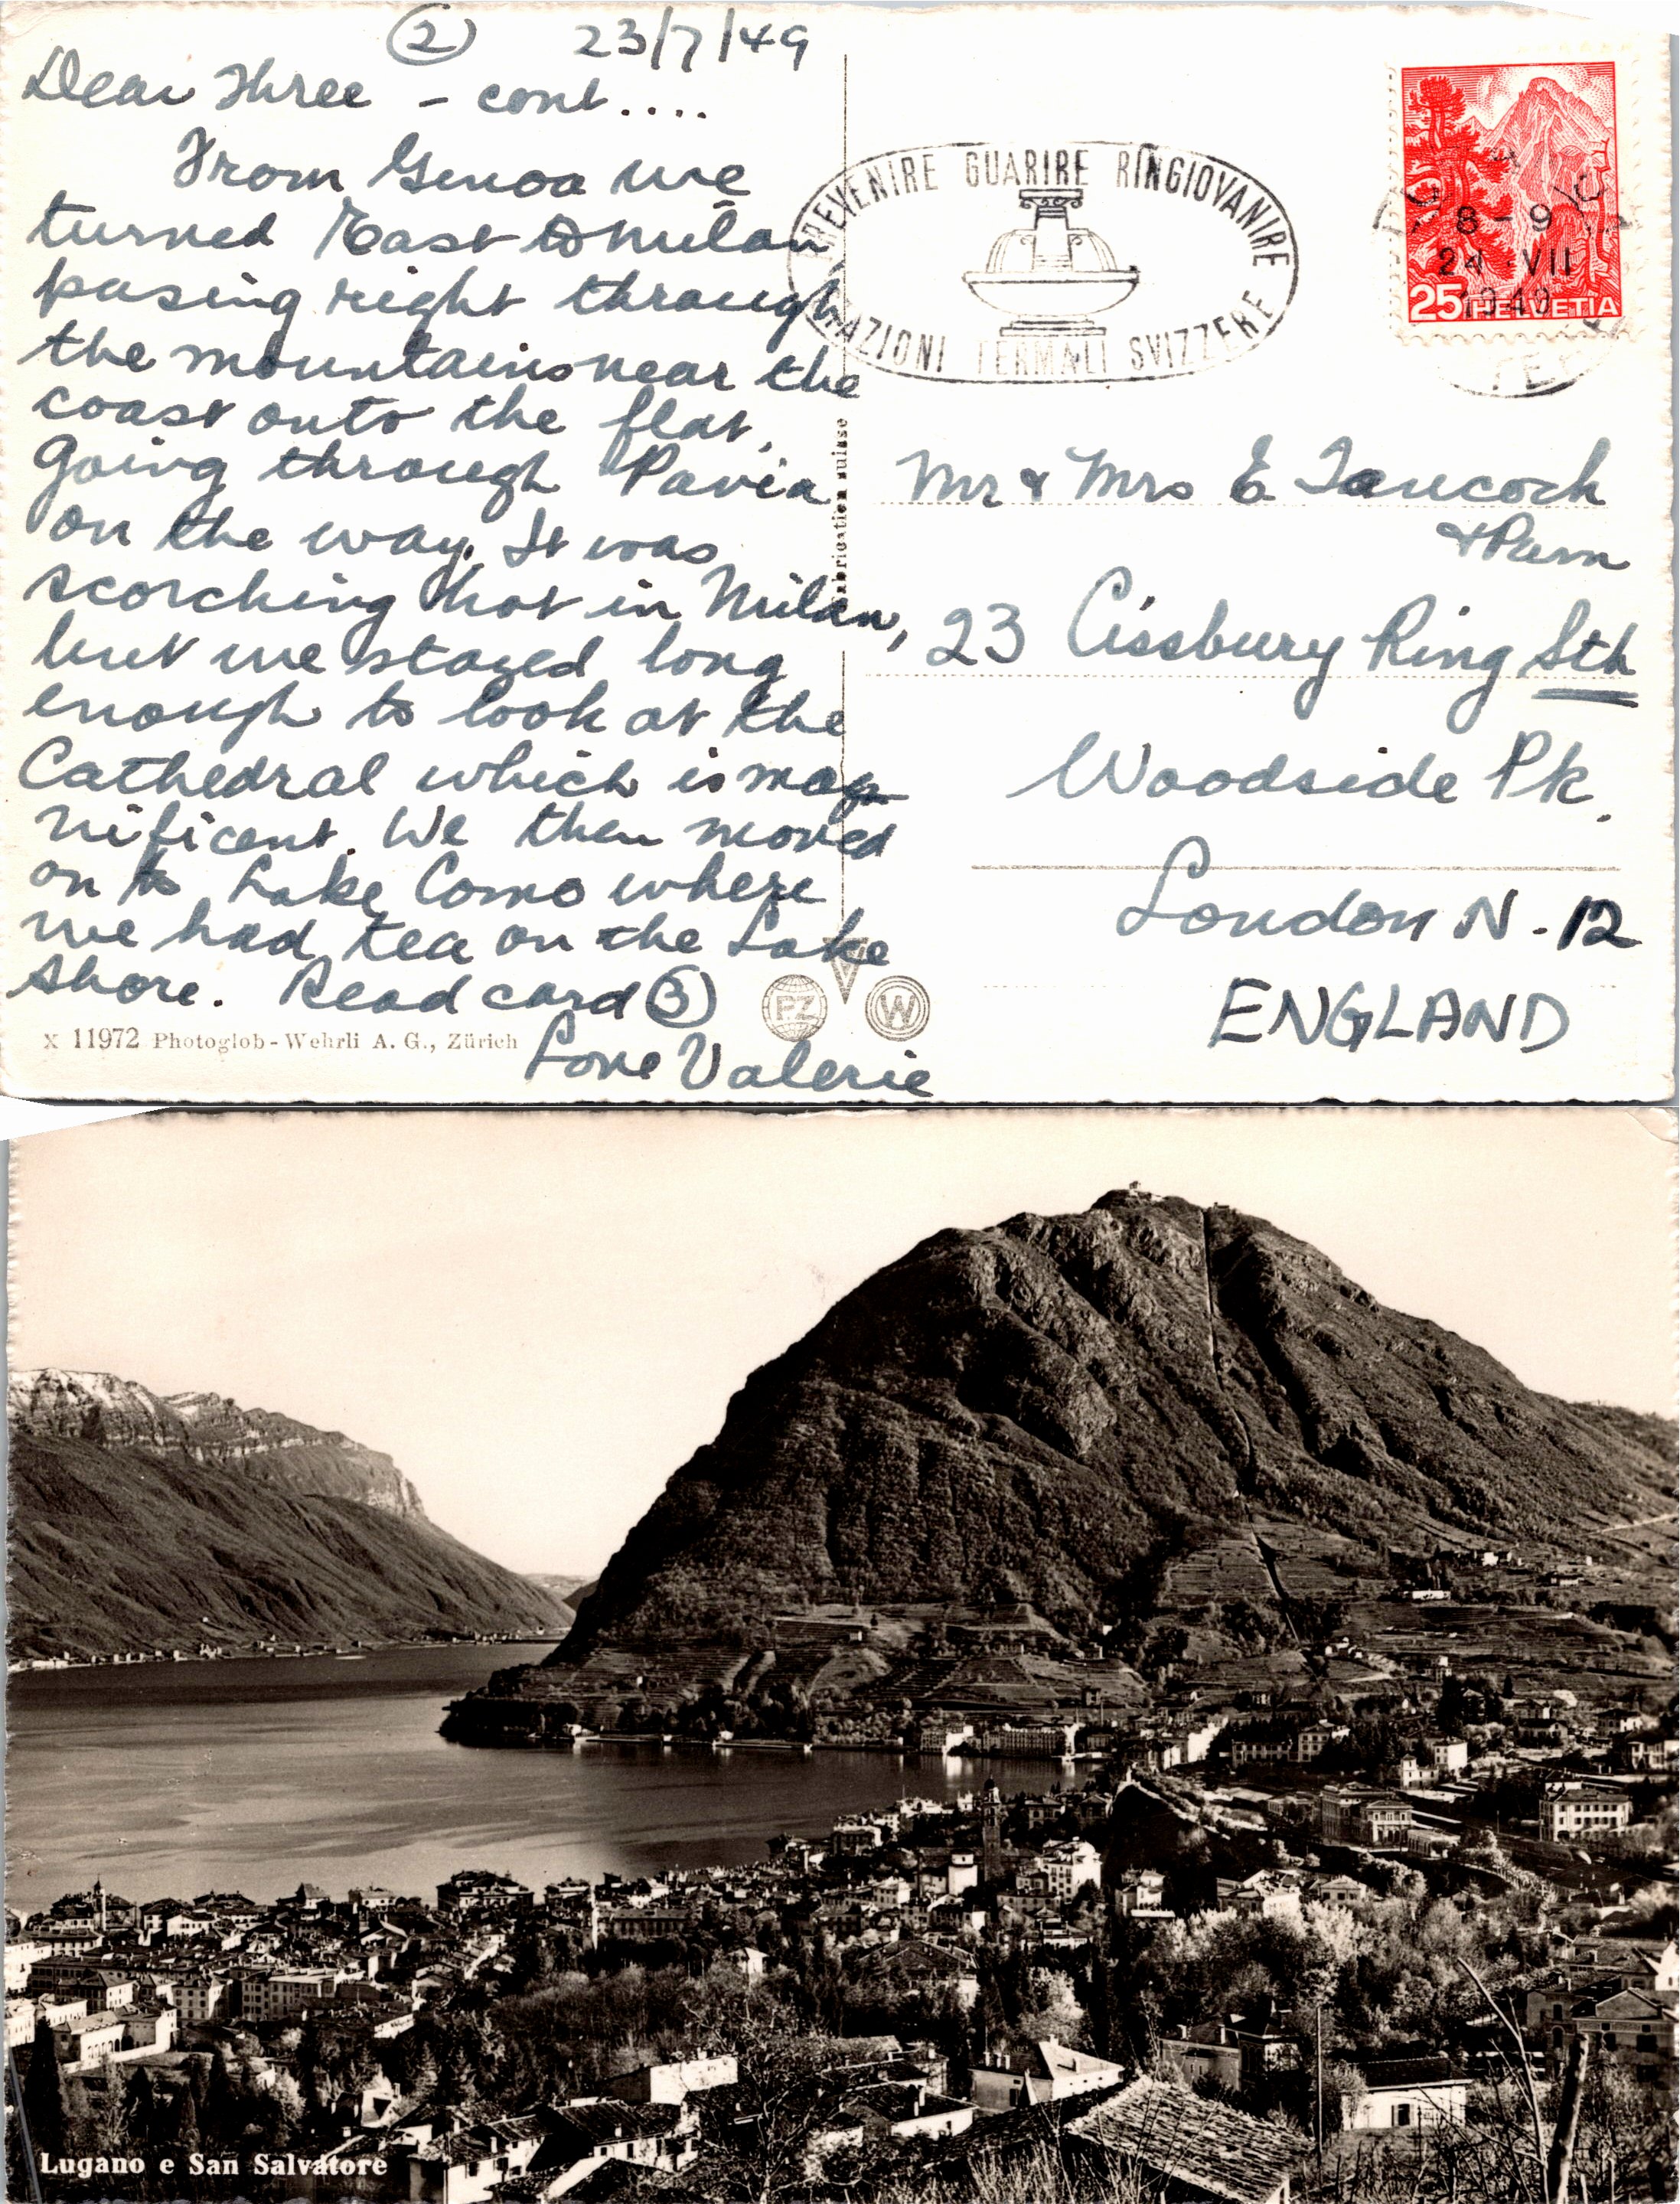 ② 23/7/49
Dear Three - cont....
From Genoa we
turned East to Milan,
pasing right through
the mountains near the
coast onto the flat,
going through Pavia
on the way. It was
scorching hot in Milan,
but we stayed long
enough to look at the
Cathedral which is mag-
nificent. We then moved
on to Lake Como where
we had tea on the Lake
shore. Read card ③
Love Valerie
X 11972 Photoglob-Wehrli A. G., Zürich
Fabrication suisse
PZ W
PREVENIRE GUARIRE RINGIOVANIRE
STAZIONI TERMALI SVIZZERE
8-9
24 VII
1949
25 HELVETIA
Mr & Mrs E Tancock
& Pam
23 Cissbury Ring Sth
Woodside Pk.
London N.12
ENGLAND
Lugano e San Salvatore